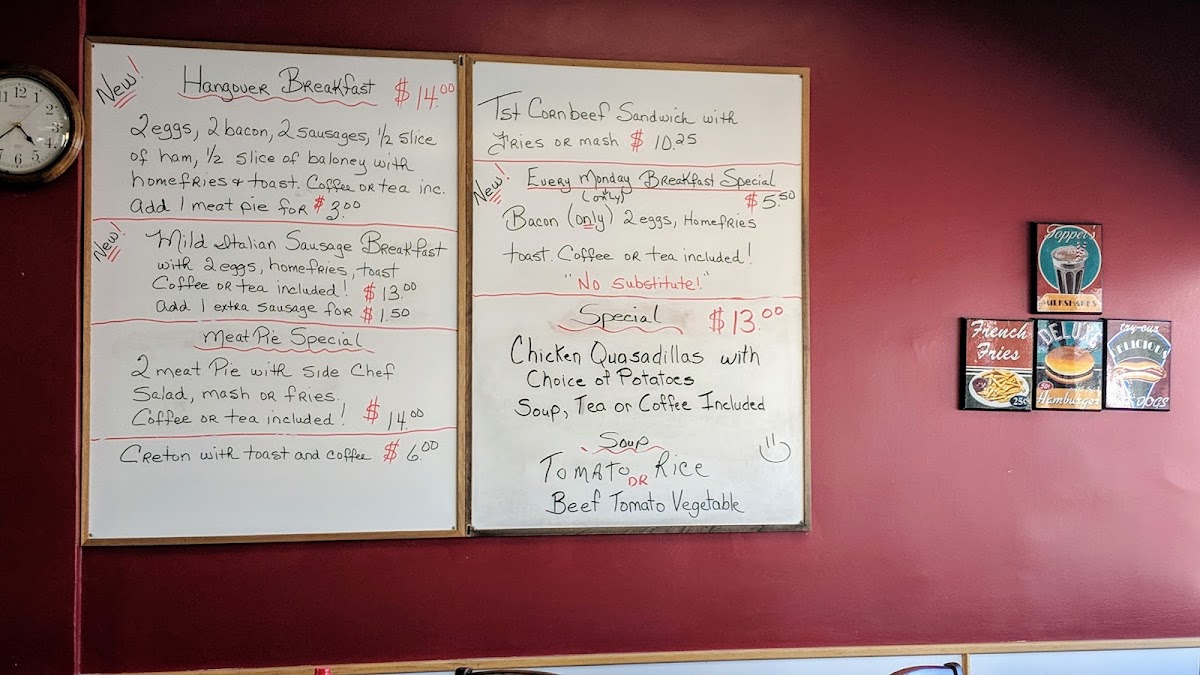 New!
Hangover Breakfast $14.00
2 eggs, 2 bacon, 2 sausages, 1/2 slice
of ham, 1/2 slice of baloney with
homefries + toast. Coffee or tea inc.
Add 1 meat pie for $3.00
New!
Mild Italian Sausage Breakfast
with 2 eggs, homefries, toast
Coffee or tea included! $13.00
Add 1 extra sausage for $1.50
Meat Pie Special
2 meat Pie with side Chef
Salad, mash or fries.
Coffee or tea included! $14.00
Creton with toast and coffee $6.00
Tst Cornbeef Sandwich with
Fries or mash $10.25
New!
Every Monday Breakfast Special
(only) $5.50
Bacon (only) 2 eggs, Homefries
toast. Coffee or tea included!
"No substitute!"
Special $13.00
Chicken Quasadillas with
Choice of Potatoes
Soup, Tea or Coffee Included
Soup
Tomato Rice
OR
Beef Tomato Vegetable
11 12 1 2 3 4 5 6 7
Topper's
MILKSHAKES
French
Fries
25¢
DELUXE
50¢
Hamburger
try our
DELICIOUS
DOGS